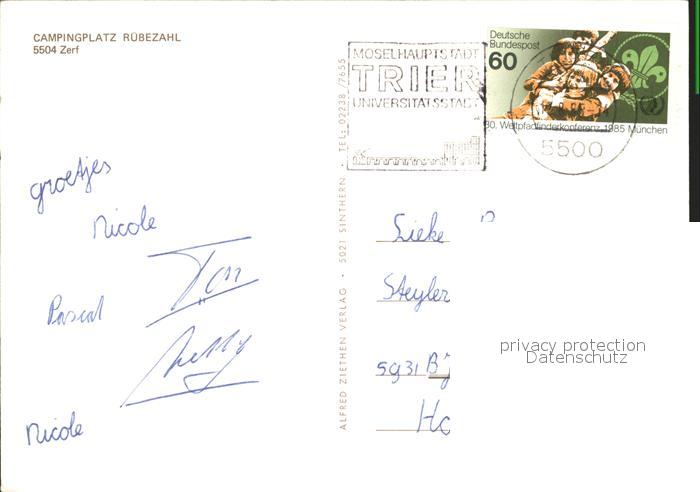 CAMPINGPLATZ RÜBEZAHL
5504 Zerf
MOSELHAUPTSTADT
TRIER
UNIVERSITÄTSSTADT
Deutsche
Bundespost
60
30. Weltpfadfinderkonferenz 1985 München
5500
ALFRED ZIETHEN VERLAG · 5021 SINTHERN · TEL: 02238/7655
groetjes
Nicole
Ton
Pascal
Nelly
Nicole
Lieke
Steyler
5931 B
privacy protection
Datenschutz